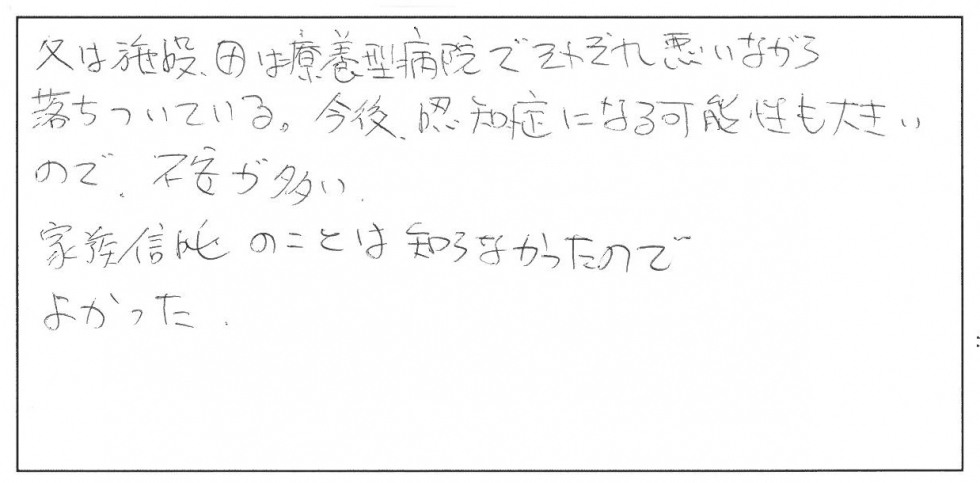 父は施設、母は療養型病院でそれぞれ悪いながら
落ちついている。今後、認知症になる可能性も大きい
ので、不安が多い.
家族信託のことは知らなかったので
よかった.